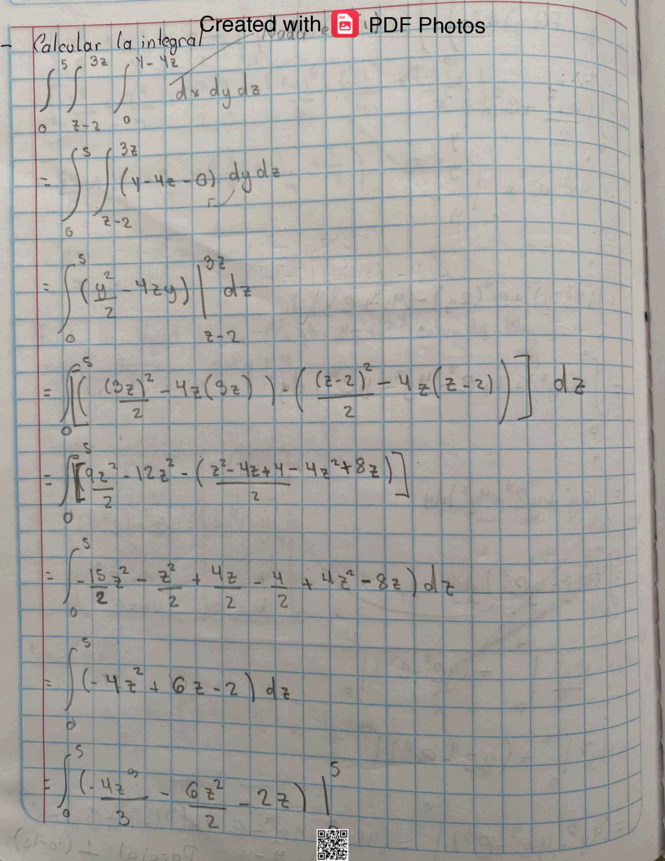 Created with PDF Photos
- Calcular la integral
∫₀⁵ ∫_{z-2}^{3z} ∫₀^{y-4z} dx dy dz
= ∫₀⁵ ∫_{z-2}^{3z} (y-4z-0) dy dz
= ∫₀⁵ (y²/2 - 4zy) |_{z-2}^{3z} dz
= ∫₀⁵ [( (3z)²/2 - 4z(3z) ) - ( (z-2)²/2 - 4z(z-2) )] dz
= ∫₀⁵ [9z²/2 - 12z² - ( z²-4z+4/2 - 4z²+8z )]
= ∫₀⁵ -15/2 z² - z²/2 + 4z/2 - 4/2 + 4z² - 8z) dz
= ∫₀⁵ (-4z² + 6z - 2) dz
= ∫₀⁵ (-4z³/3 - 6z²/2 - 2z) |⁵